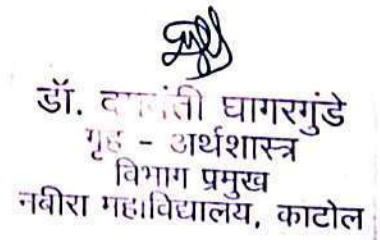 डॉ. घागरगुंडे
गृह - अर्थशास्त्र
विभाग प्रमुख
नबीरा महाविद्यालय, काटोल